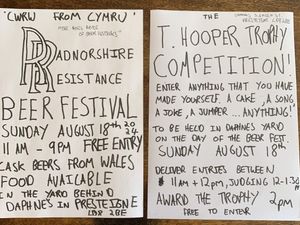 'CWRW FROM CYMRU'
RADNORSHIRE
RESISTANCE
BEER FESTIVAL
SUNDAY AUGUST 18th 2024
11AM - 9PM FREE ENTRY
CASK BEERS FROM WALES
FOOD AVAILABLE
IN THE YARD BEHIND
DAPHNE'S IN PRESTEIGNE
LD8 2BE
THE
T. HOOPER TROPHY
COMPETITION'
ENTER ANYTHING THAT YOU HAVE
MADE YOURSELF. A CAKE, A SONG,
A JOKE, A JUMPER ... ANYTHING!
TO BE HELD IN DAPHNE'S YARD
ON THE DAY OF THE BEER FEST.
SUNDAY AUGUST 18th
DELIVER ENTRIES BETWEEN
11AM + 12PM, JUDGING 12-1.30
AWARD THE TROPHY 2PM
FREE TO ENTER